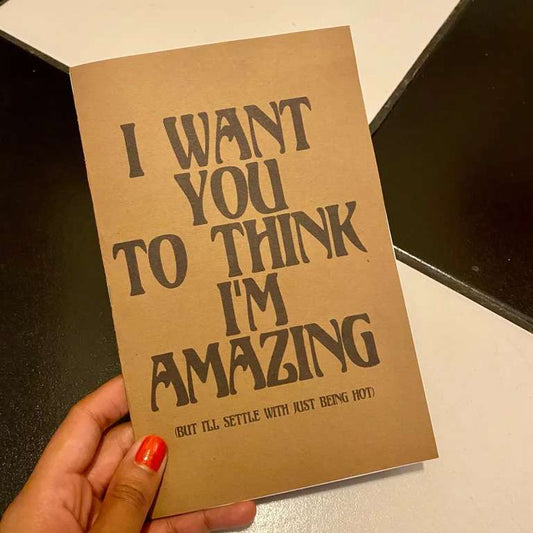 I WANT
YOU
TO THINK
I'M
AMAZING
(BUT I'LL SETTLE WITH JUST BEING HOT)